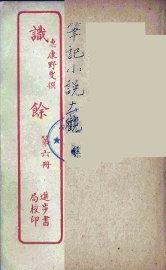 筆記小說大觀
惠康野叟撰
識餘
第六冊
進步書
局校印